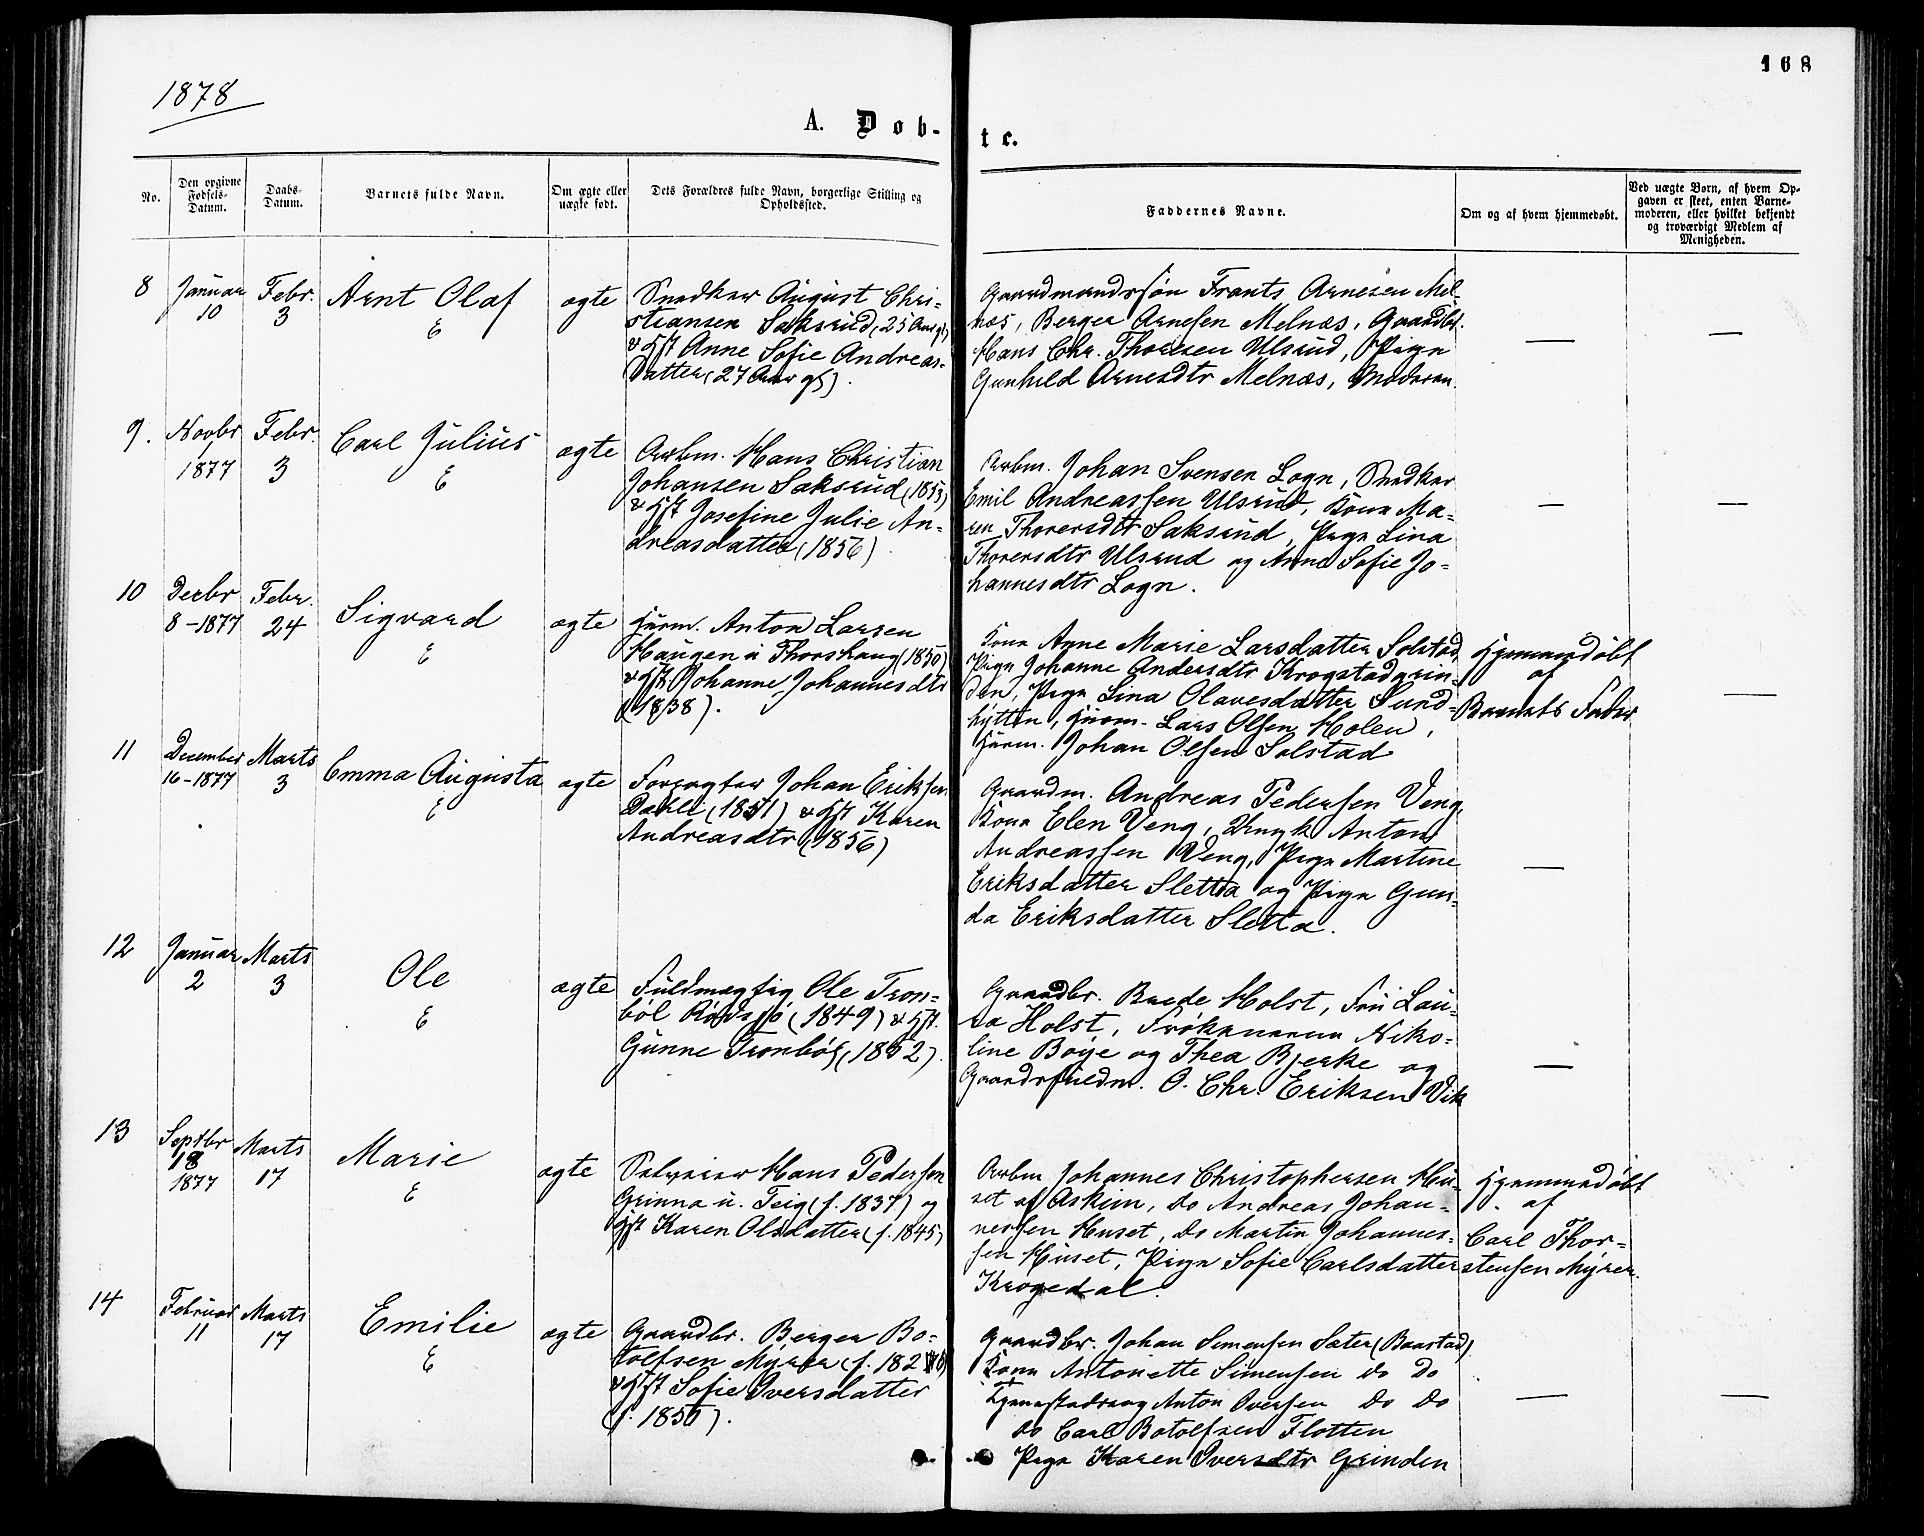 168
1878
A. Døb-
te.
No.
Den opgivne Fødsels-Datum.
Daabs-Datum.
Barnets fulde Navn.
Om ægte eller uægte født.
Dets Forældres fulde Navn, borgerlige Stilling og Opholdssted.
Faddernes Navne.
Om og af hvem hjemmedøbt.
Ved uægte Børn, af hvem Op-
gaven er skeet, enten Barne-
moderen, eller hvilket bekjendt
og troværdigt Medlem af
Menigheden.
8 Januar 10
Febr. 3
Arnt Olaf
E
ægte
Snedker August Chri-
stiansen Saksrud (25 Aar gl)
& Hst Anne Sofie Andreas-
Datter (27 Aar gl).
Gaardmandssøn Frants Arnesen Mel-
næs, Berger Arnesen Melnæs, Gaardbr.
Hans Chr. Thoresen Ulsrud, Pige
Gunhild Arnesdtr Melnæs, Moderen.
—
—
9. Novbr 1877
Febr. 3
Carl Julius
E
ægte
Arbm. Hans Christian
Johansen Saksrud (1853)
& Hst Josefine Julie An-
dreasdatter (1856)
Arbm. Johan Svensen Logn, Snedker
Emil Andreassen Ulsrud, Kone Ma-
ren Thorersdtr Saksrud, Pige Lina
Thorersdtr Ulsrud og Anne Sofie Jo-
hannesdtr Logn.
—
—
10 Decbr 8-1877
Febr. 24
Sigvard
E
ægte
Husm. Anton Larsen
Haugen u Thorshaug (1850)
& Hst Johanne Johannesdtr
(1838).
Kone Anne Marie Larsdatter Solstad,
Pige Johanne Andersdtr Krogstadgrin-
den, Pige Lina Olavesdatter Sund-
hytten, Husm. Lars Olsen Holen,
Husm. Johan Olsen Solstad
Hjemmedøbt
af
Barnets Fader
—
11 December 16-1877
Marts 3
Emma Augusta
E
ægte
Forpagter Johan Eriksen
Dahli (1851) & Hst Karen
Andreasdtr (1856)
Gaardm. Andreas Pedersen Veng,
Kone Elen Veng, Ungk Anton
Andreassen Veng, Pige Martine
Eriksdatter Sletta og Pige Gun-
da Eriksdatter Sletta.
—
12 Januar 2
Marts 3
Ole
E
ægte
Fuldmægtig Ole Tron-
bøl Rødsjø (1849) & Hst.
Gunne Tronbøl (1852).
Gaardbr. Brede Holst, Fru Lau-
ra Holst, Frøknerne Niko-
line Boye og Thea Bjerke og
Gaardsfuldm. O. Chr. Eriksen Vik
—
13 Septbr 18 1877
Marts 17
Marie
E
ægte
Selveier Hans Pedersen
Grinna u. Teig (f. 1837) og
Hst Karen Olsdatter (f. 1845)
Arbm Johannes Christophersen Hu-
set af Askim, do Andreas Johan-
nessen Huset, do Martin Johannes-
sen Huset, Pige Sofie Carlsdatter
Krogedal.
Hjemmedøbt
af
Carl Thor-
stensen Myrer.
14 Februar 11
Marts 17
Emilie
E
ægte
Gaardbr. Berger Bo-
tolfsen Myrer (f. 182
& Hst Sofie Iversdatter
(f. 1850).
Gaardbr. Johan Simensen Sæter (Baastad)
Kone Antonette Simensen do do
Anton Iversen do do
do Carl Botolfsen Flotten
Pige Karen Iversdtr Grinden
—
—